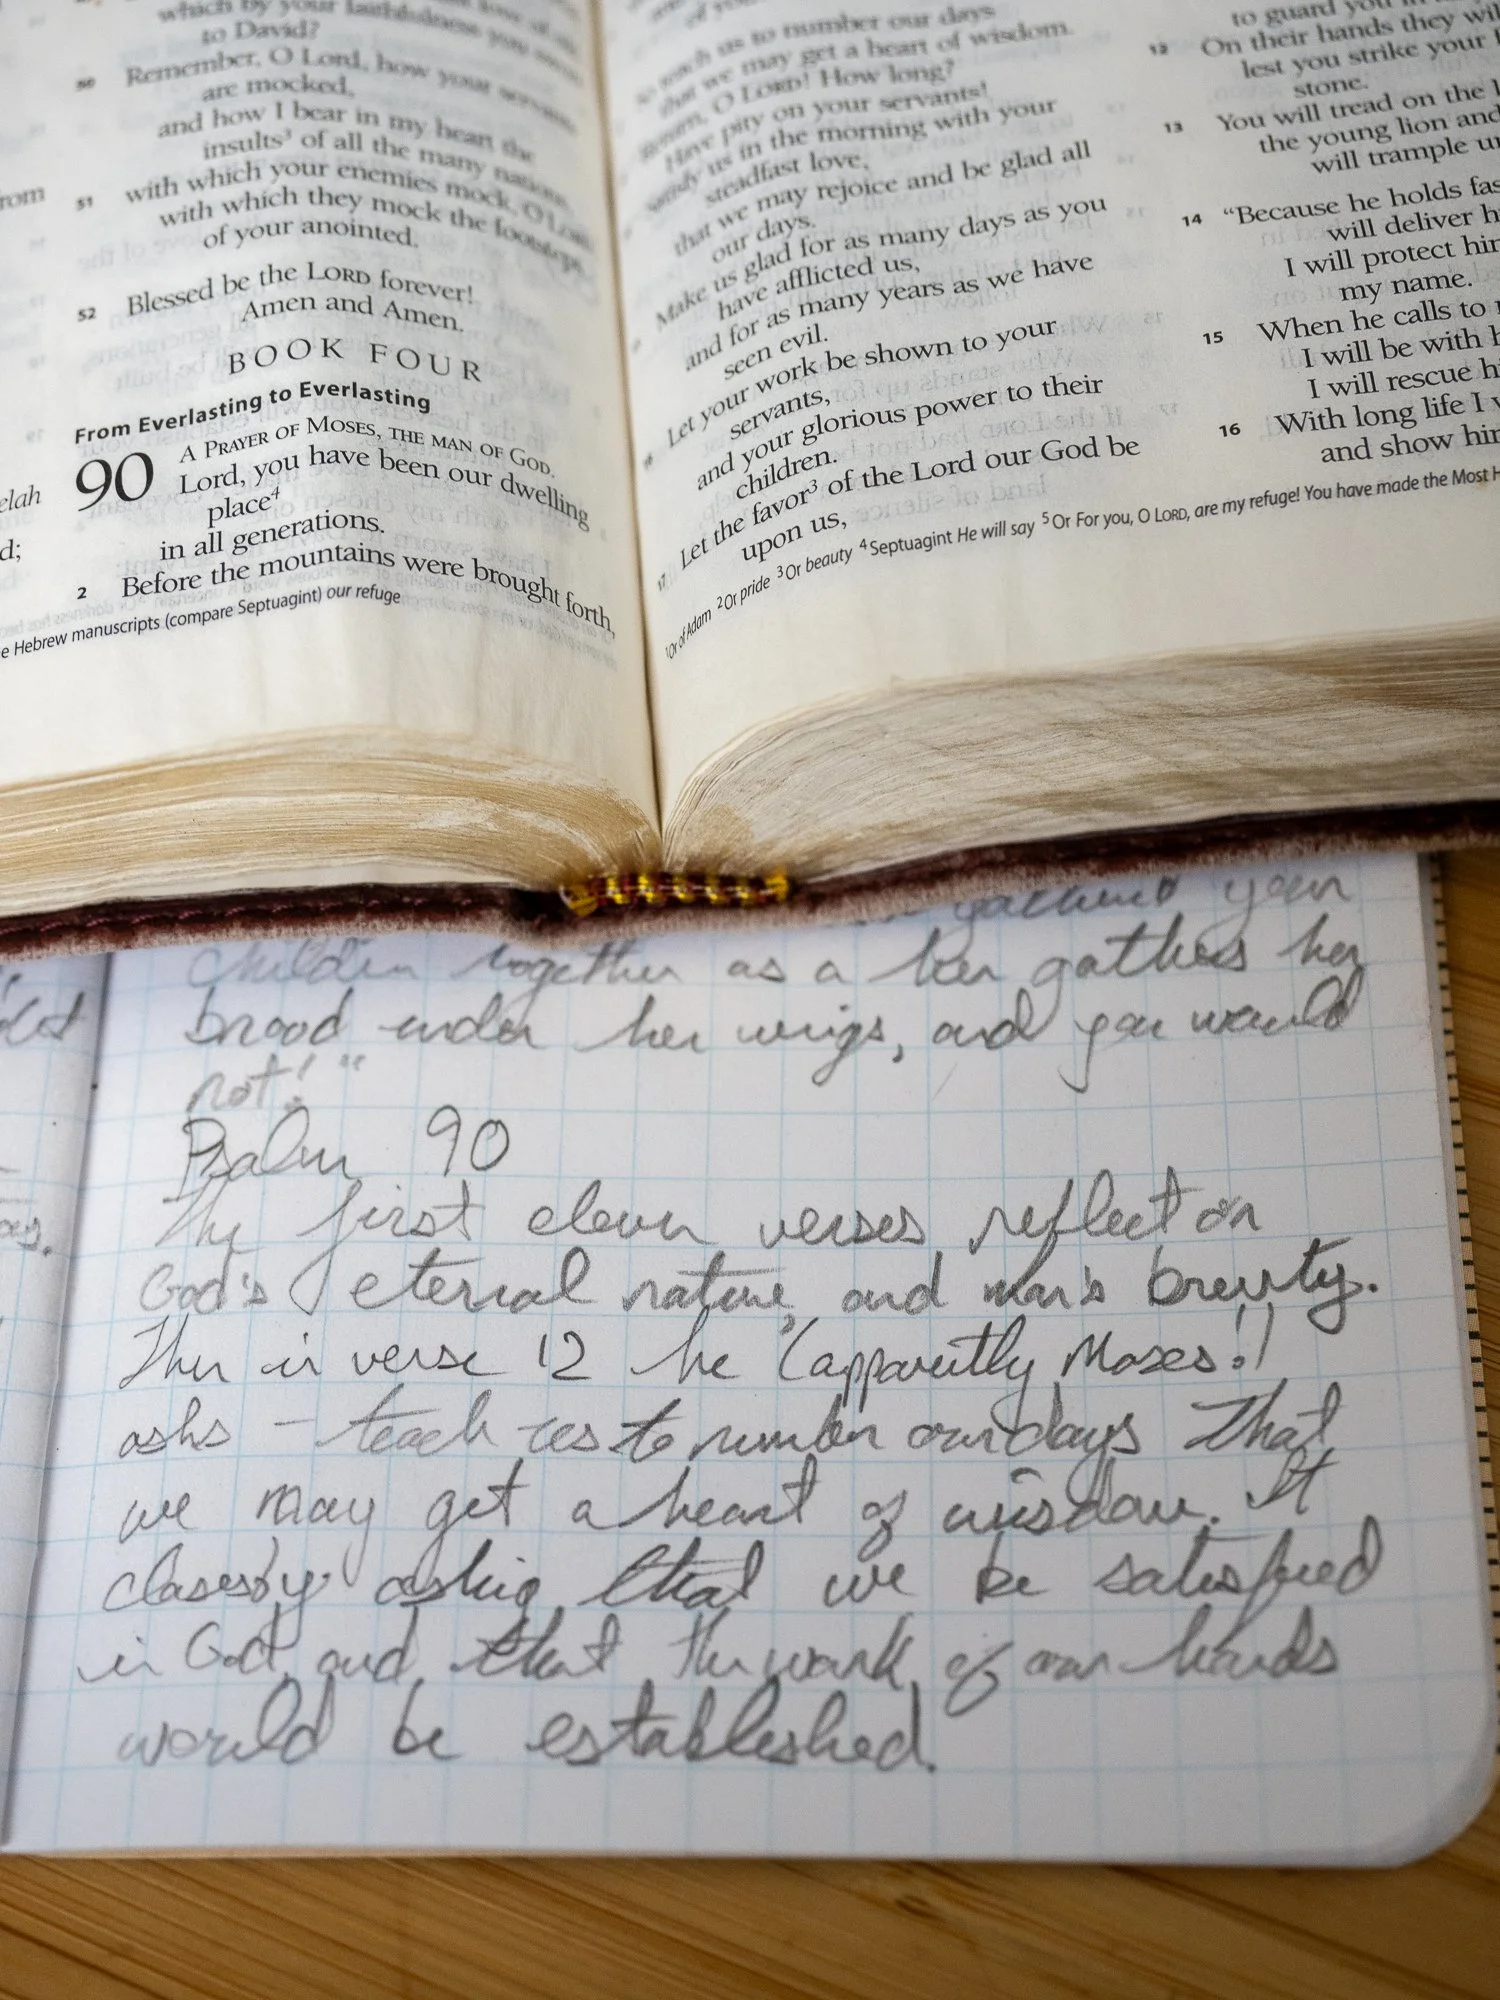 which by your faithfulness you
to David?
50 Remember, O Lord, how your servants
are mocked,
and how I bear in my heart the
insults³ of all the many nations,
51 with which your enemies mock, O Lord,
with which they mock the footsteps
of your anointed.
52 Blessed be the LORD forever!
Amen and Amen.
BOOK FOUR
From Everlasting to Everlasting
A PRAYER OF MOSES, THE MAN OF GOD.
90 Lord, you have been our dwelling
place⁴
in all generations.
2 Before the mountains were brought forth,
Hebrew manuscripts (compare Septuagint) our refuge
rom
elah
d;
teach us to number our days
that we may get a heart of wisdom.
Return, O LORD! How long?
Have pity on your servants!
us in the morning with your
steadfast love,
that we may rejoice and be glad all
our days.
Make us glad for as many days as you
have afflicted us,
and for as many years as we have
seen evil.
16 Let your work be shown to your
servants,
and your glorious power to their
children.
17 Let the favor³ of the Lord our God be
upon us,
¹Or of Adam ²Or pride ³Or beauty ⁴Septuagint He will say ⁵Or For you, O LORD, are my refuge! You have made the Most H
to guard you in
12 On their hands they wil
lest you strike your
stone.
13 You will tread on the l
the young lion and
will trample un
14 “Because he holds fas
will deliver h
I will protect him
my name.
15 When he calls to
I will be with h
I will rescue h
16 With long life I
and show him
your
children together as a hen gathers her
brood under her wings, and you would
not!"
Psalm 90
The first eleven verses reflect on
God's eternal nature, and man's brevity.
Then in verse 12 he (apparently Moses!)
asks – teach us to number our days that
we may get a heart of wisdom. It
closes by asking that we be satisfied
in God, and that the work of our hands
would be established.